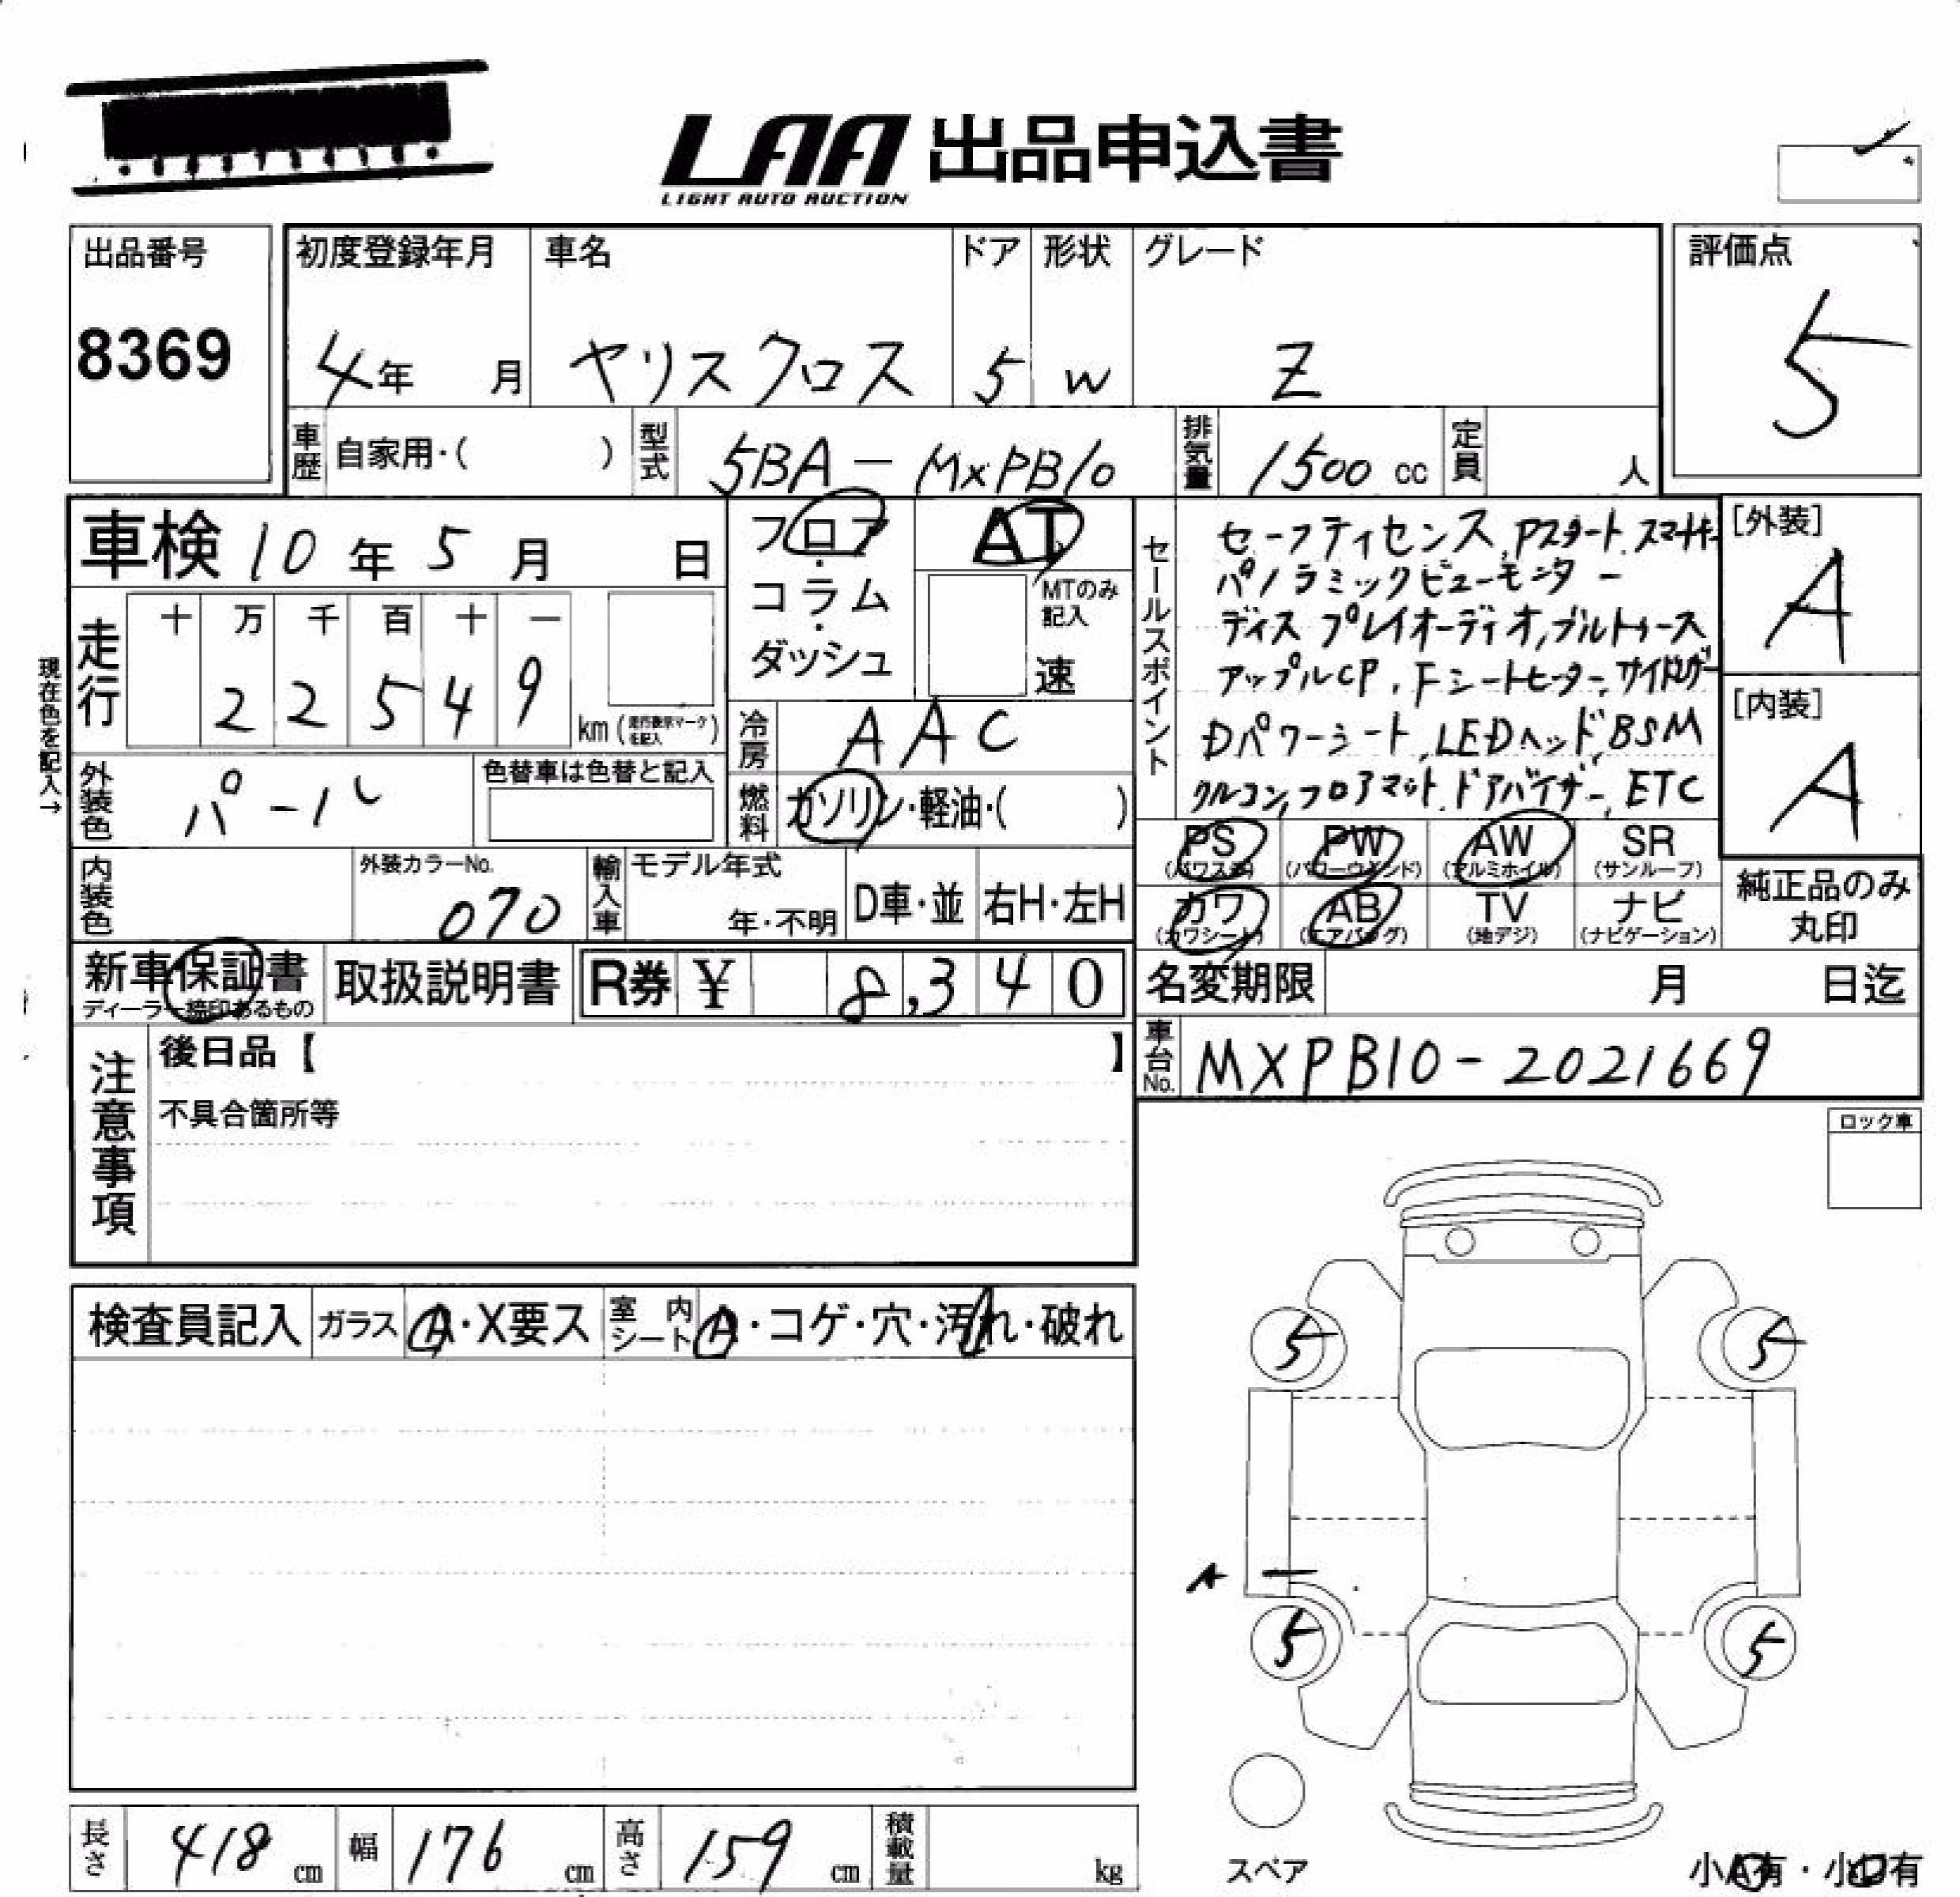 LAA 出品申込書
LIGHT AUTO AUCTION
出品番号
8369
初度登録年月
4年 月
車名
ヤリスクロス
ドア
5
形状
W
グレード
Z
評価点
5
車歴 自家用・( )
型式 5BA-MXPB10
排気量 1500 cc
定員 人
車検 10年 5月 日
フロア・コラム・ダッシュ
AT
MTのみ記入
速
セールスポイント
セーフティセンス,Pスタート,スマートキー
パノラミックビューモニター
ディスプレイオーディオ,ブルートゥース
アップルCP,Fシートヒーター,
Dパワーシート,LEDヘッド,BSM
クルコン,フロアマット,ドアバイザー,ETC
[外装]
A
[内装]
A
現在色を記入→
走行
十 万 千 百 十 一
2 2 5 4 9
km(走行表示マークを記入)
冷房 AAC
燃料 ガソリン・軽油・( )
外装色 パール
色替車は色替と記入
内装色
外装カラーNo.
070
輸入車
モデル年式
年・不明
D車・並
右H・左H
PS
(パワステ)
PW
(パワーウィンド)
AW
(アルミホイル)
SR
(サンルーフ)
カワ
(カワシート)
AB
(エアバッグ)
TV
(地デジ)
ナビ
(ナビゲーション)
純正品のみ
丸印
新車保証書
ディーラー捺印あるもの
取扱説明書
R券 ¥ 8,340
名変期限 月 日迄
車台No. MXPB10-2021669
注意事項
後日品【 】
不具合箇所等
ロック車
検査員記入
ガラス A・X要ス
室内シート A・コゲ・穴・汚れ・破れ
5
5
A
5
5
スペア
小A有・小U有
長さ 418 cm
幅 176 cm
高さ 159 cm
積載量 kg